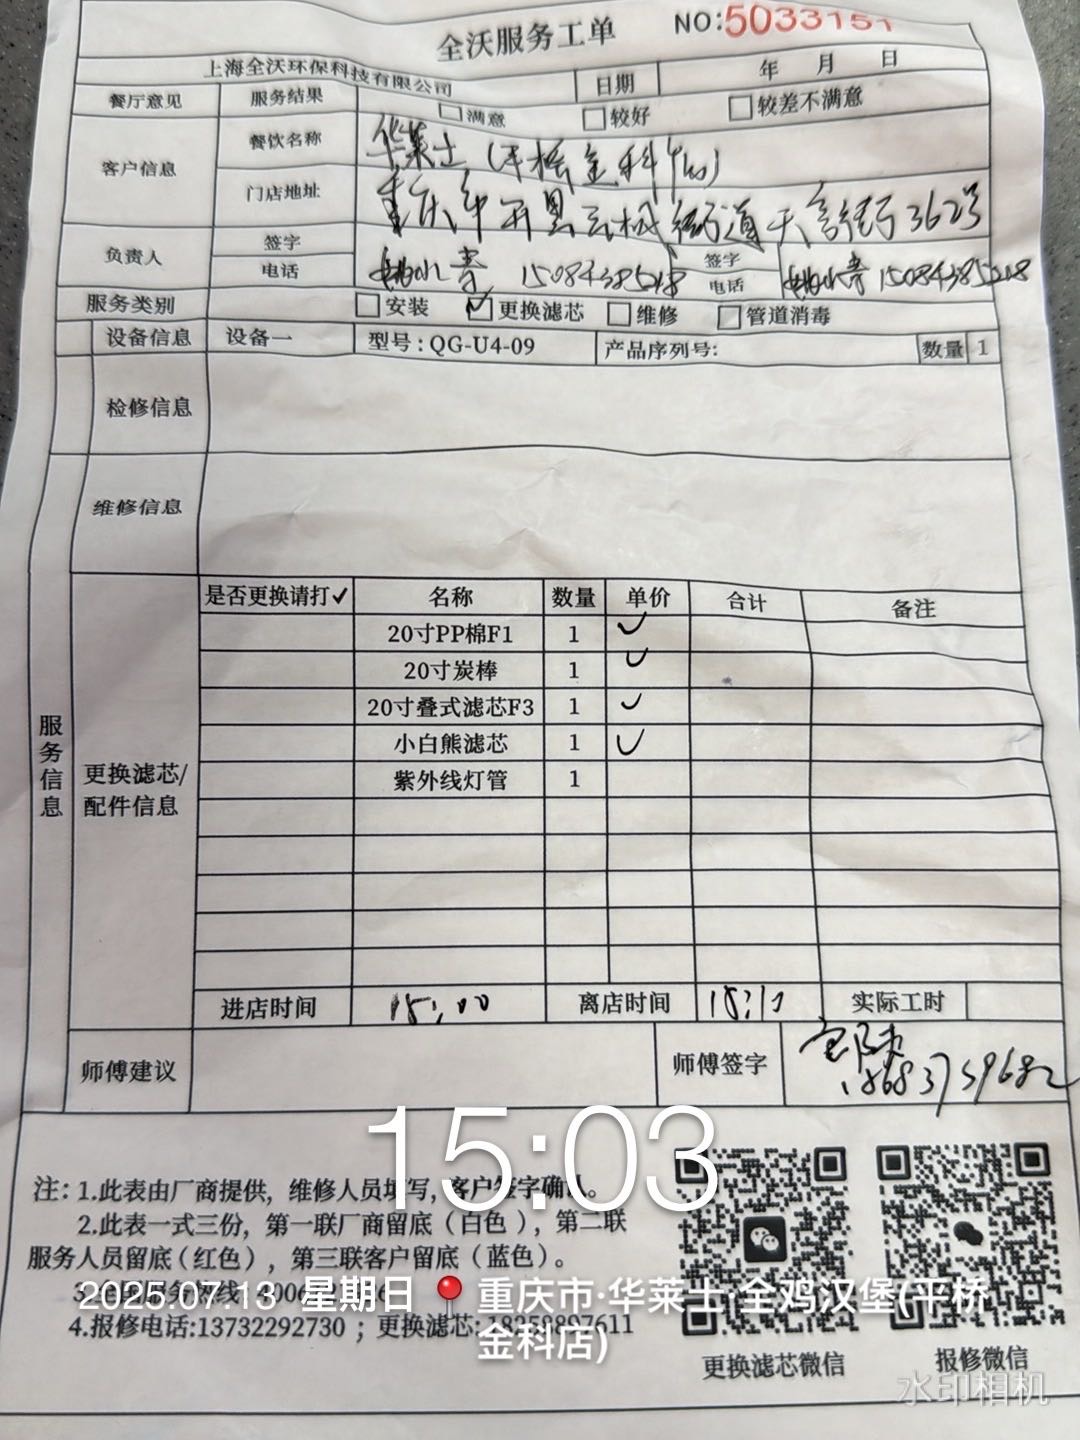 全沃服务工单
NO:5033151
上海全沃环保科技有限公司 日期 年 月 日
餐厅意见 服务结果 满意 较好 较差不满意
客户信息 餐饮名称 华莱士(平桥金科店)
门店地址 重庆市开县云枫街道天宫街362号
负责人 签字 电话 15084385218 签字 电话 15084385218
服务类别 安装 ✓更换滤芯 维修 管道消毒
设备信息 设备一 型号:QG-U4-09 产品序列号: 数量 1
检修信息
维修信息
服务信息
更换滤芯/配件信息
是否更换请打✓ 名称 数量 单价 合计 备注
20寸PP棉F1 1 ✓
20寸炭棒 1 ✓
20寸叠式滤芯F3 1 ✓
小白熊滤芯 1 ✓
紫外线灯管 1
进店时间 15:00 离店时间 15:17 实际工时
师傅建议 师傅签字
15:03
注:1.此表由厂商提供,维修人员填写,客户签字确认。
2.此表一式三份,第一联厂商留底(白色),第二联
服务人员留底(红色),第三联客户留底(蓝色)。
2025.07.13 星期日 重庆市·华莱士·全鸡汉堡(平桥
金科店)
4.报修电话:13732292730;更换滤芯:18258897611
更换滤芯微信 报修微信
水印相机